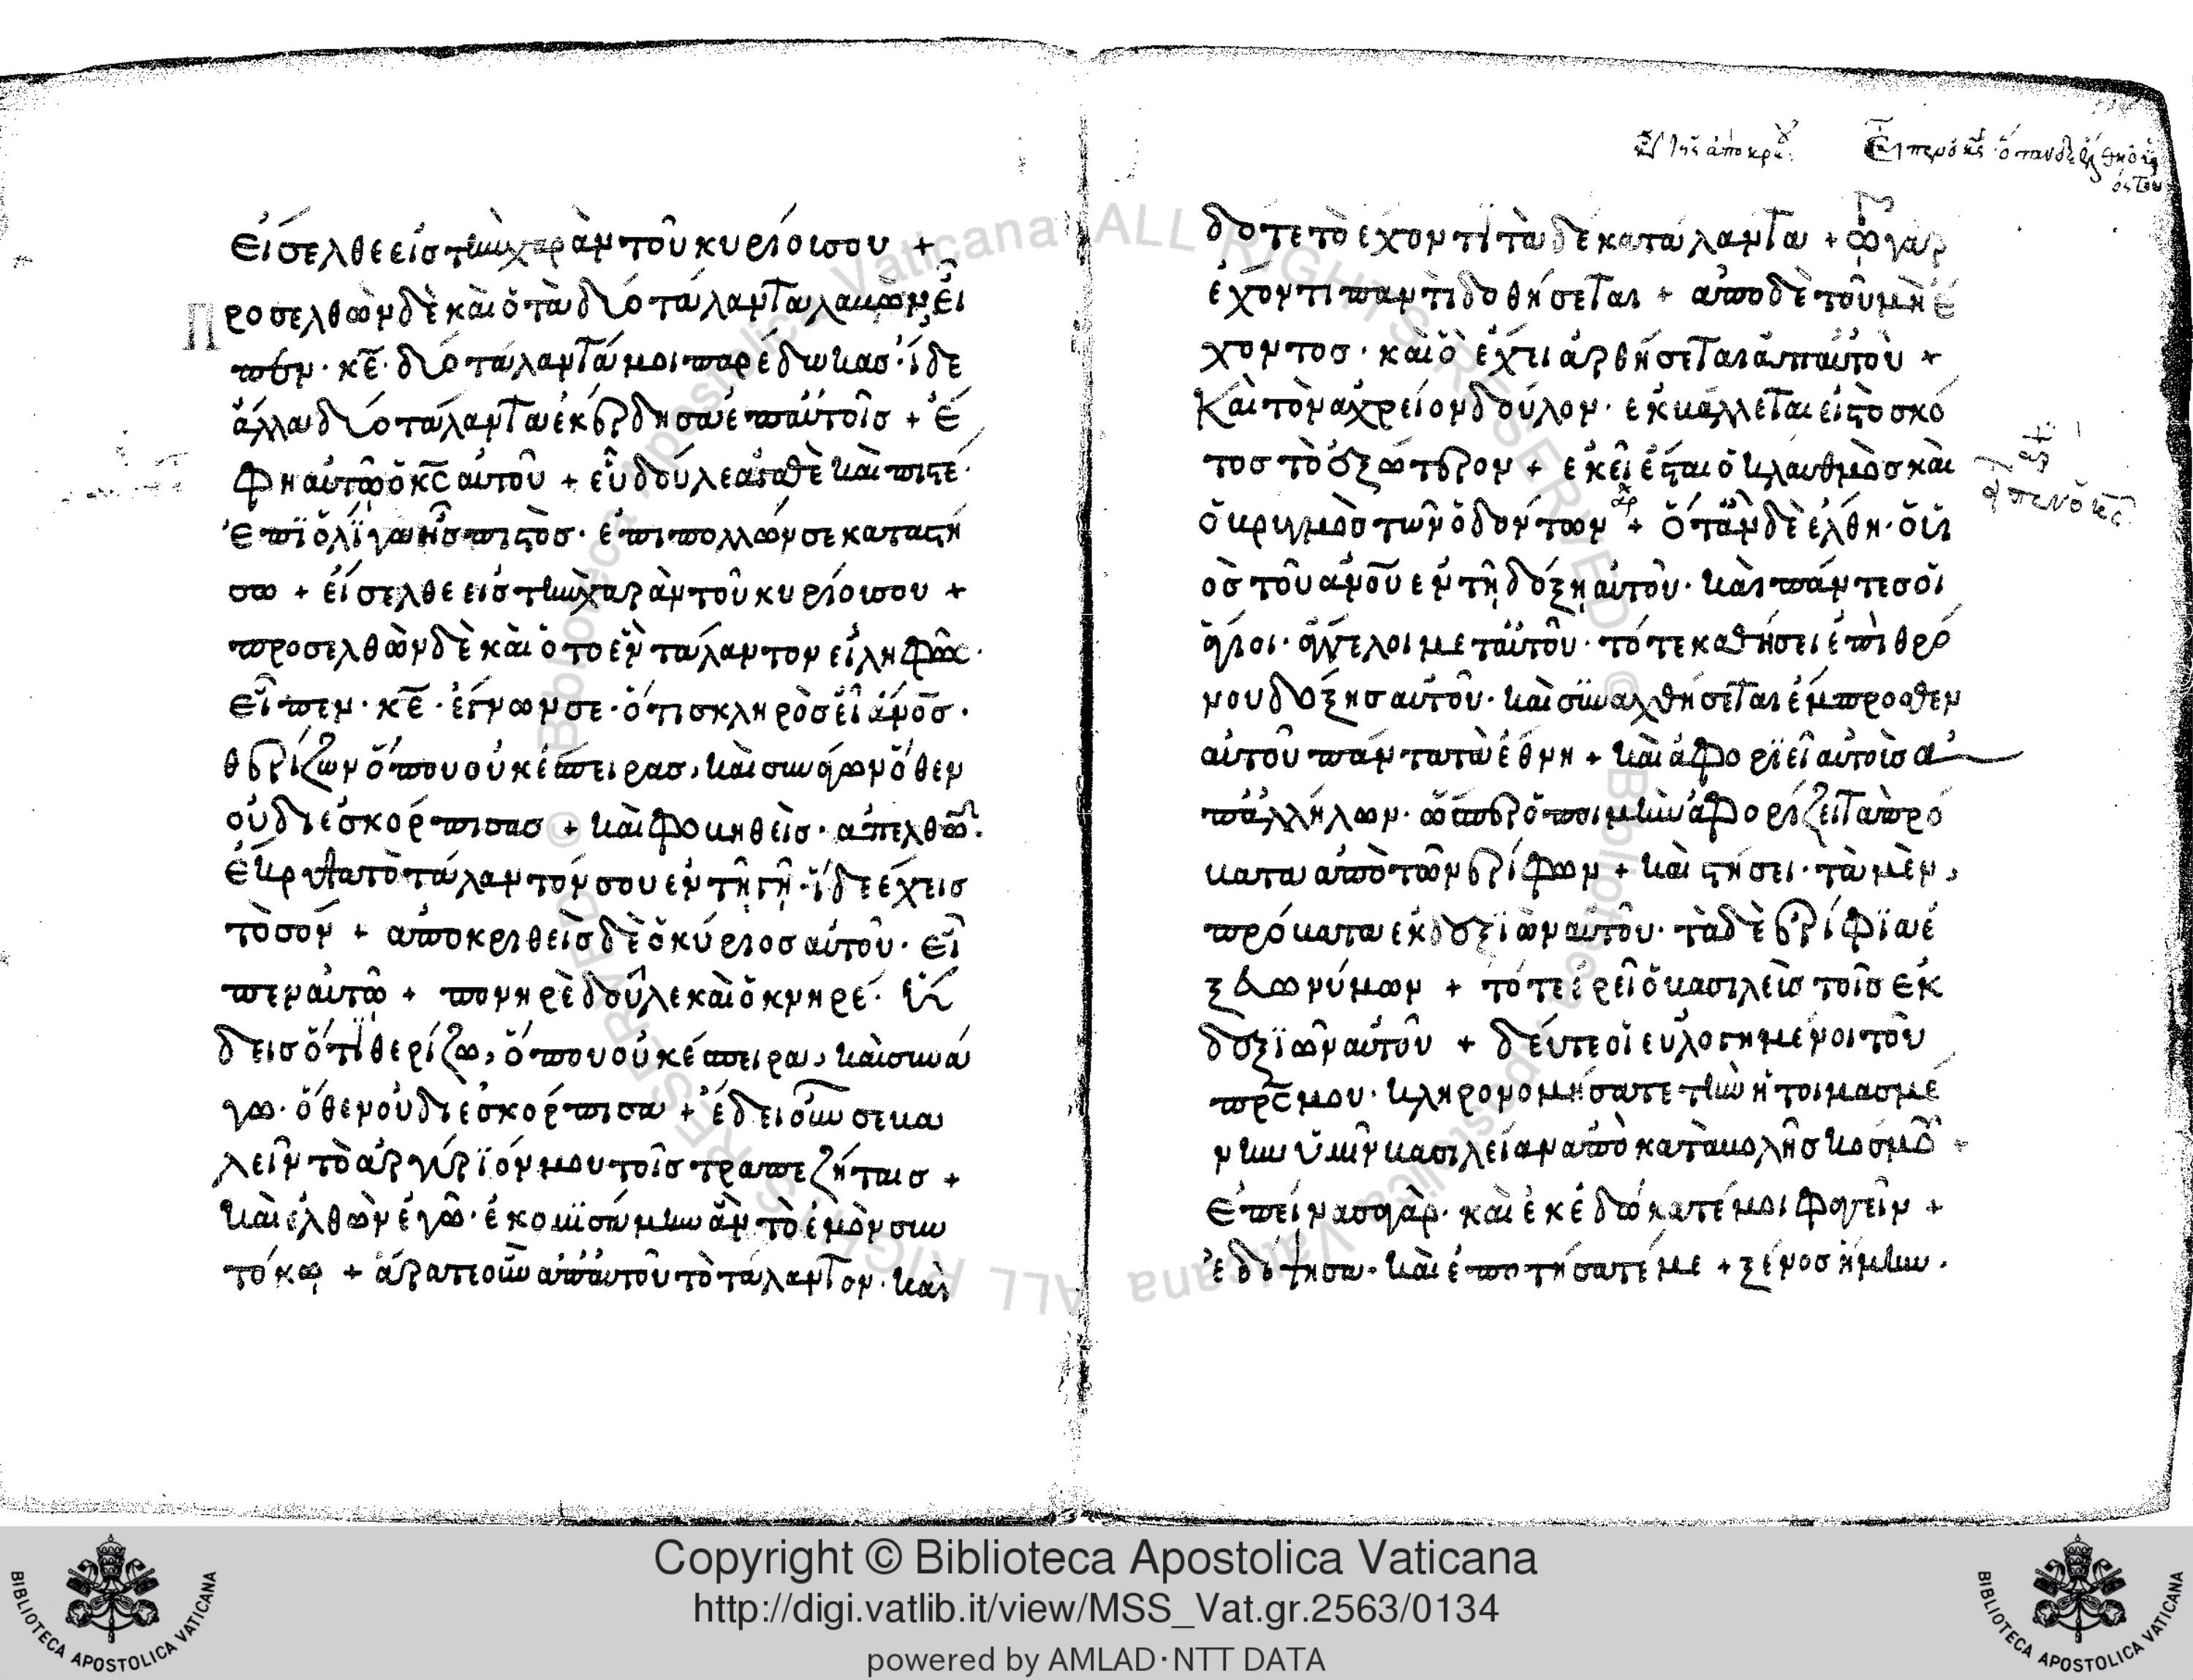 εἴσελθε εἰς τὴν χαρὰν τοῦ κυρίου σου +
Προσελθὼν δὲ καὶ ὁ τὰ δύο τάλαντα λαβὼν, εἶ
πεν· κ̅ε̅· δύο τάλαντά μοι παρέδωκας· ἴδε
ἄλλα δύο τάλαντα ἐκέρδησα ἐπ' αὐτοῖς + ἔ
φη αὐτῷ ὁ κ̅ς̅ αὐτοῦ + εὖ δοῦλε ἀγαθὲ καὶ πιστέ·
ἐπὶ ὀλίγα ἦς πιστὸς· ἐπὶ πολλῶν σε καταστή
σω + εἴσελθε εἰς τὴν χαρὰν τοῦ κυρίου σου +
προσελθὼν δὲ καὶ ὁ τὸ ἓν τάλαντον εἰληφὼς·
εἶπεν· κ̅ε̅· ἔγνων σε· ὅτι σκληρὸς εἶ α̅ν̅ο̅ς̅·
θερίζων ὅπου οὐκ ἔσπειρας, καὶ συνάγων ὅθεν
οὐ διεσκόρπισας + καὶ φοβηθεὶς· ἀπελθὼν·
ἔκρυψα τὸ τάλαντόν σου ἐν τῇ γῇ· ἴδε ἔχεις
τὸ σόν + ἀποκριθεὶς δὲ ὁ κύριος αὐτοῦ· εἶ
πεν αὐτῷ + πονηρὲ δοῦλε καὶ ὀκνηρέ· ἤ
δεις ὅτι θερίζω, ὅπου οὐκ ἔσπειρα, καὶ συνά
γω· ὅθεν οὐ διεσκόρπισα + ἔδει οὖν σε βα
λεῖν τὸ ἀργύριόν μου τοῖς τραπεζήταις +
καὶ ἐλθὼν ἐγὼ· ἐκομισάμην ἂν τὸ ἐμὸν σὺν
τόκῳ + ἄρατε οὖν ἀπ' αὐτοῦ τὸ τάλαντον· καὶ
δότε τῷ ἔχοντι τὰ δέκα τάλαντα + τῷ γὰρ
ἔχοντι παντὶ δοθήσεται + ἀπὸ δὲ τοῦ μὴ ἔ
χοντος· καὶ ὃ ἔχει ἀρθήσεται ἀπ' αὐτοῦ +
Καὶ τὸν ἀχρεῖον δοῦλον· ἐκβάλλεται εἰς τὸ σκό
τος τὸ ἐξώτερον + ἐκεῖ ἔσται ὁ κλαυθμὸς καὶ
ὁ βρυγμὸς τῶν ὀδόντων + ὅταν δὲ ἔλθῃ· ὁ υἱ
ὸς τοῦ α̅ν̅ο̅υ̅ ἐν τῇ δόξῃ αὐτοῦ· καὶ πάντες οἱ
ἅγιοι· ἄγγελοι μετ' αὐτοῦ· τότε καθήσει ἐπὶ θρό
νου δόξης αὐτοῦ· καὶ συναχθήσεται ἔμπροσθεν
αὐτοῦ πάντα τὰ ἔθνη + καὶ ἀφοριεῖ αὐτοὺς ἀ
π' ἀλλήλων· ὥσπερ ὁ ποιμὴν ἀφορίζει τὰ πρό
βατα ἀπὸ τῶν ἐρίφων + καὶ στήσει· τὰ μὲν,
πρόβατα ἐκ δεξιῶν αὐτοῦ· τὰ δὲ ἐρίφια ἐ
ξ εὐωνύμων + τότε ἐρεῖ ὁ βασιλεὺς τοῖς ἐκ
δεξιῶν αὐτοῦ + δεῦτε οἱ εὐλογημένοι τοῦ
π̅ρ̅ς̅ μου· κληρονομήσατε τὴν ἡτοιμασμέ
νην ὑμῖν βασιλείαν ἀπὸ καταβολῆς κόσμου
ἐπείνασα γὰρ· καὶ ἐκέδώκατέ μοι φαγεῖν +
ἐδίψησα· καὶ ἐποτήσατέ με + ξένος ἤμην·
Copyright © Biblioteca Apostolica Vaticana
http://digi.vatlib.it/view/MSS_Vat.gr.2563/0134
powered by AMLAD·NTT DATA
BIBLIOTECA APOSTOLICA VATICANA
BIBLIOTECA APOSTOLICA VATICANA